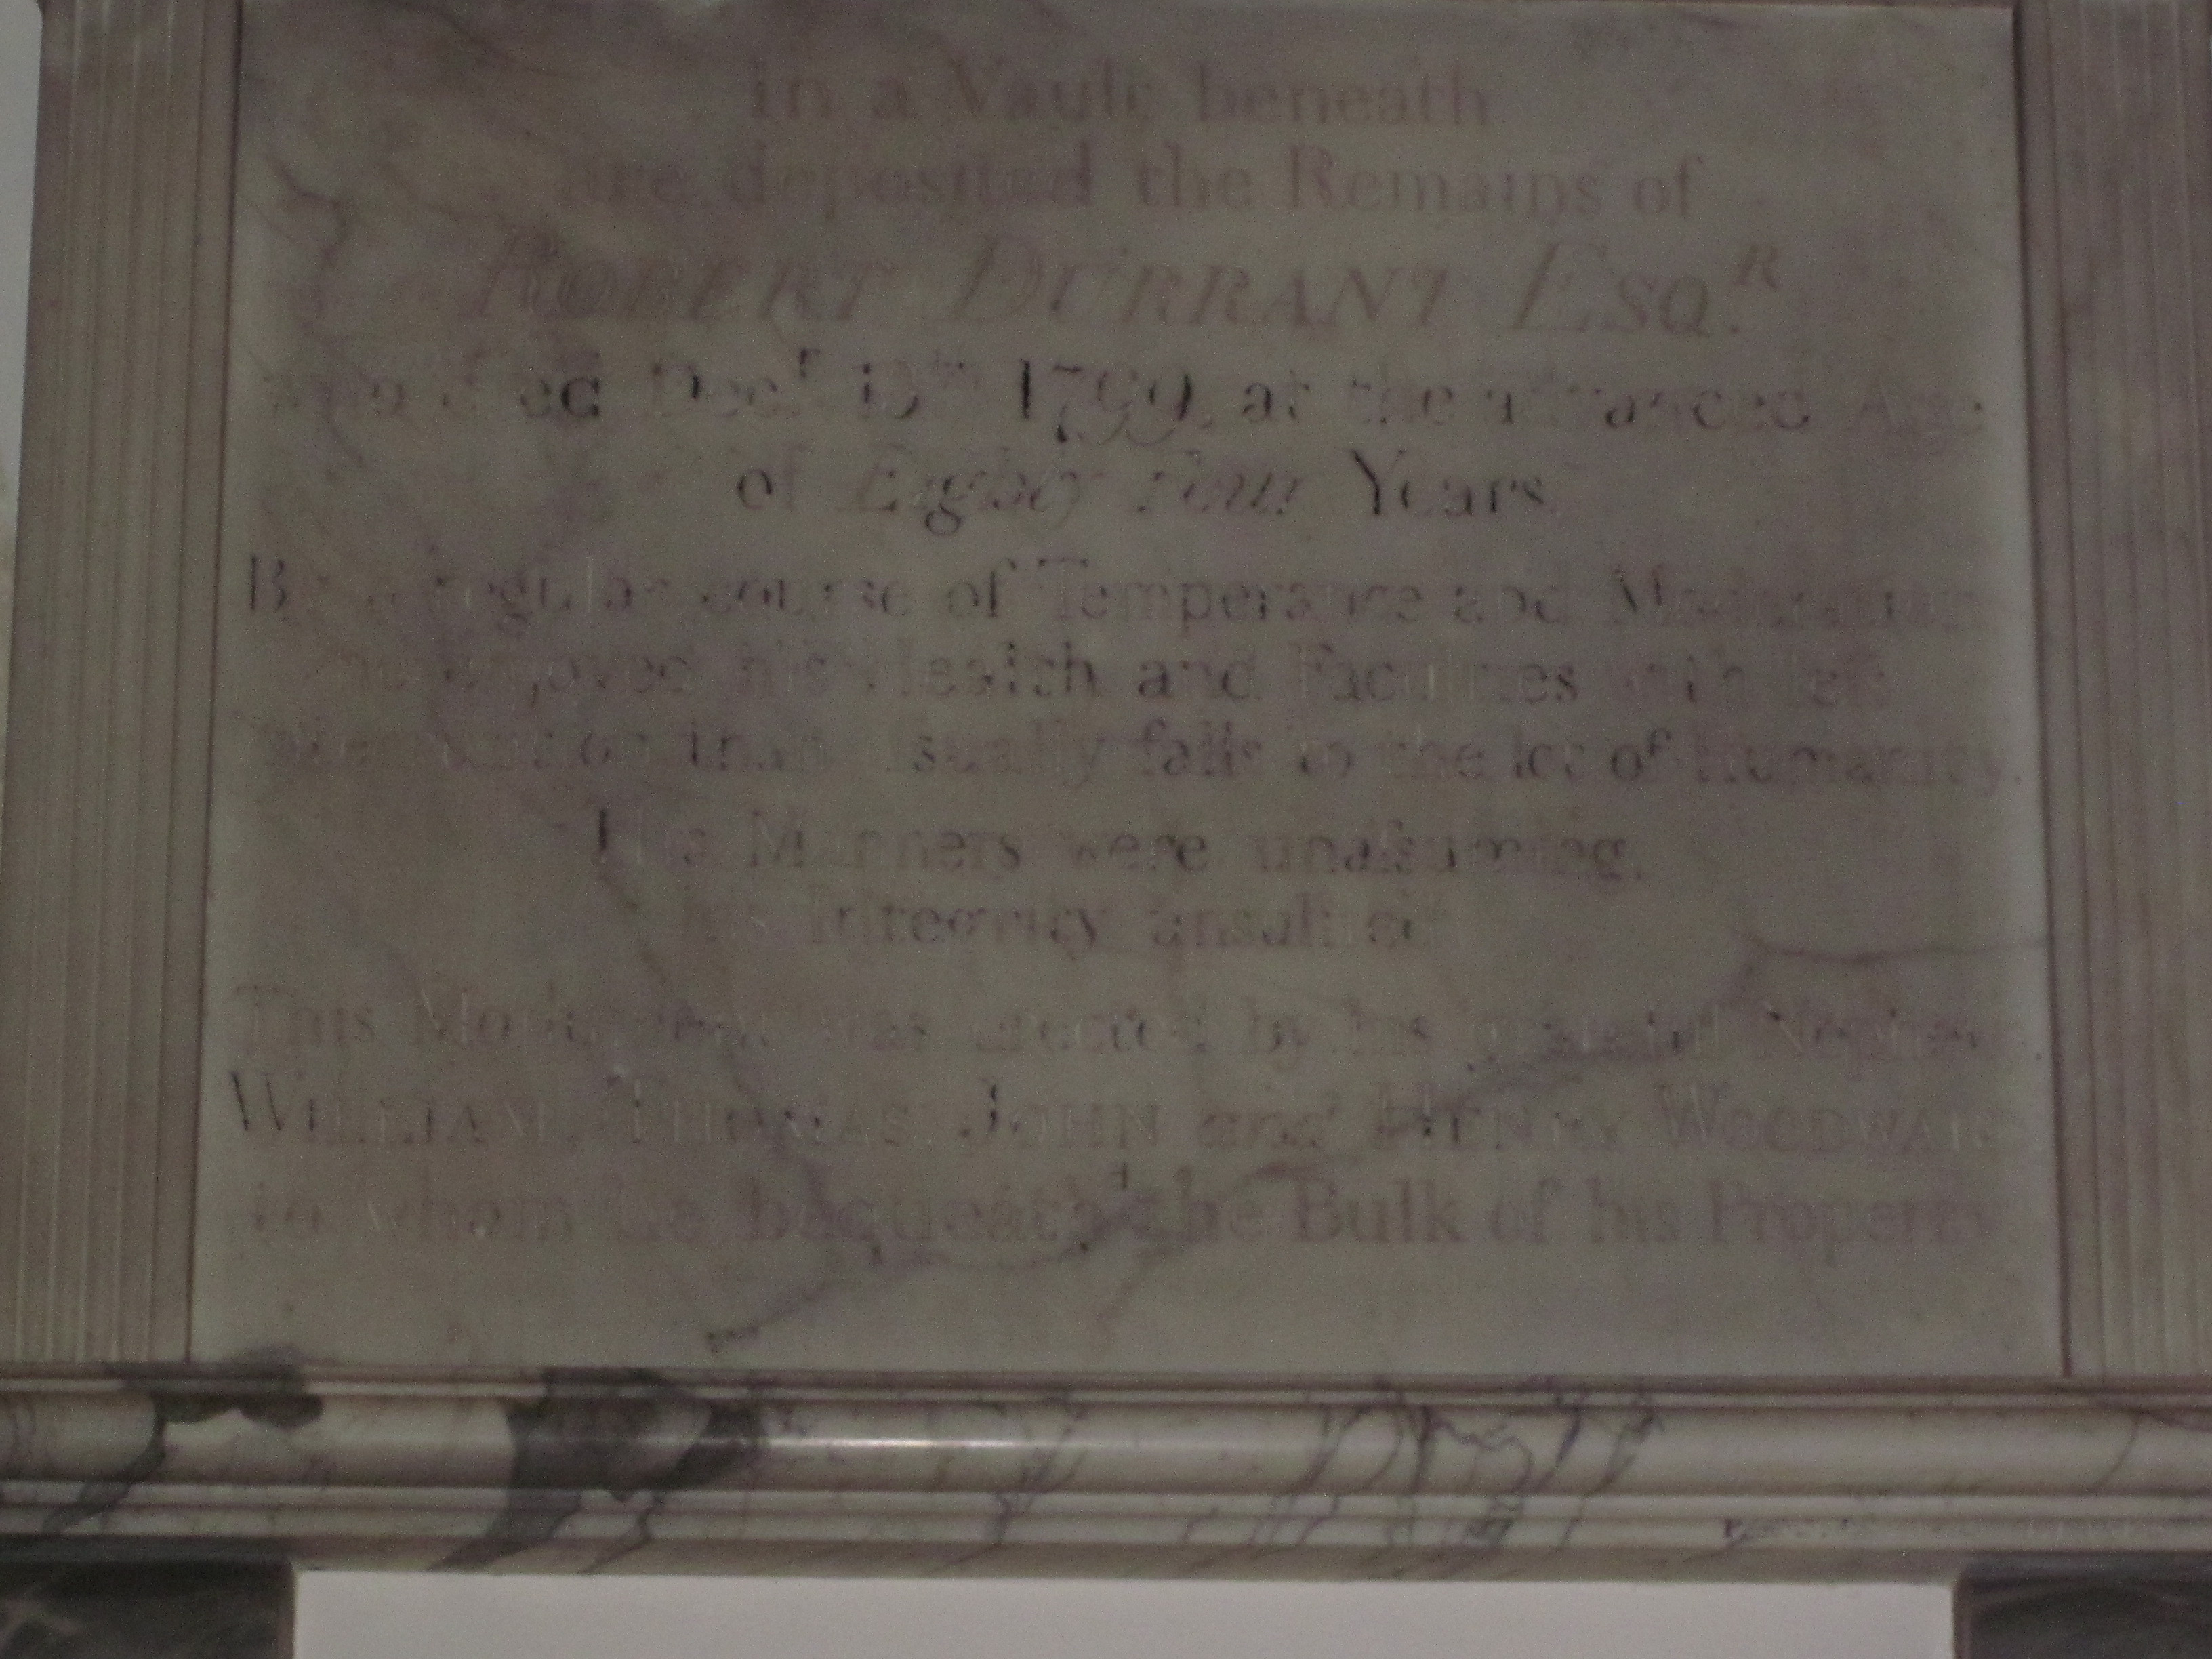 In a Vault beneath
are deposited the Remains of
ROBERT DURRANT ESQ.R
who died Decr. 13th 1799, at the advanced Age
of Eighty Four Years
By a regular course of Temperance and Moderation
he enjoyed his Health and Faculties with leſs
than usually falls to the lot of Humanity
His Manners were unaſsuming,
his Integrity unsullied
This Monument was erected by his grateful Nephews
WILLIAM, THOMAS, JOHN and HENRY WOODWARD
to whom he bequeath'd the Bulk of his Property